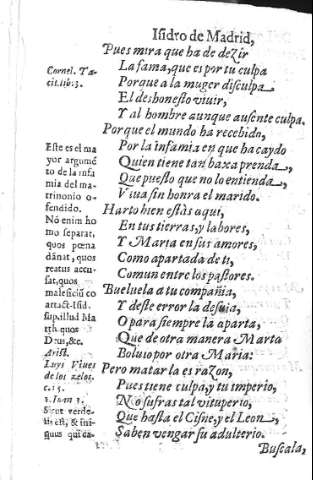 Isidro de Madrid,
Pues mira que ha de dezir
La fama, que es por tu culpa
Porque a la muger disculpa
El deshonesto viuir,
Y al hombre aunque ausente culpa.
Porque el mundo ha recebido,
Por la infamia en que ha caydo
Quien tiene tan baxa prenda,
Que puesto que no lo entienda,
Viua sin honra el marido.
Harto bien estàs aqui,
En tus tierras, y labores,
Y Maria en sus amores,
Como apartada de ti,
Comun entre los pastores.
Bueluela a tu compañia,
Y deste error la desuia,
O para siempre la aparta,
Que de otra manera Marta
Boluio por otra Maria:
Pero matarla es razon,
Pues tiene culpa, y tu imperio,
No sufras tal vituperio,
Que hasta el Cisne, y el Leon,
Saben vengar su adulterio.
Buscala,
Cornel. Ta-
cit. lib. 3.
Este es el ma
yor argumẽ
to de la infa
mia del ma-
trimonio o-
fendido.
Nõ enim ho
mo separat,
quos pœna
dãnat, quos
reatus accu-
sat, quos
maleficiũ co
arctat. Isid.
sup. illud Ma
tth. quos
Deus, &c.
Arist.
Luys Viues
de los zelos.
c. 15.
1. Ioan 1.